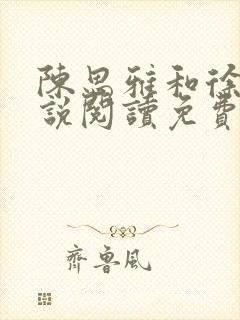 陳思雅和徐
說閱讀免費
齊魯風